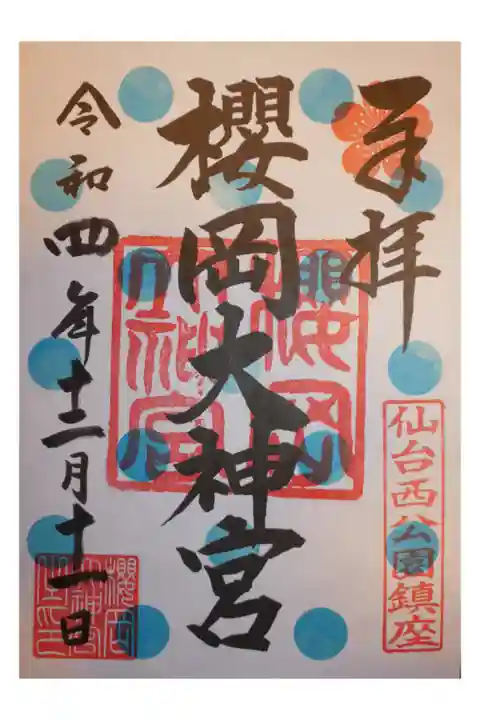 奉拝
仙台西公園鎮座
櫻岡大神宮
櫻岡大神宮
令和四年十二月十一日
櫻岡大神宮之印